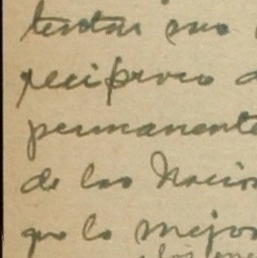 tentar sus
reciproco a
permanente
de las Nacio
que la mejor